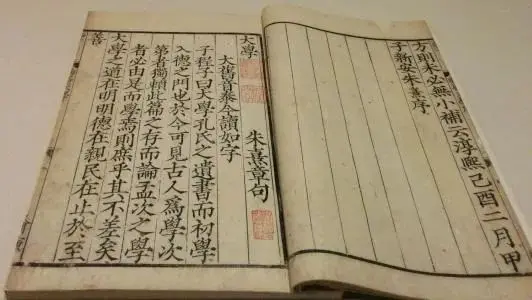 方則未必無小補云淳熙己酉二月甲
子新安朱熹序
大學
朱熹章句
大舊音泰今讀如字
子程子曰大學孔氏之遺書而初學
入德之門也於今可見古人為學次
第者獨賴此篇之存而論孟次之學
者必由是而學焉則庶乎其不差矣
大學之道在明明德在親民在止於至
善